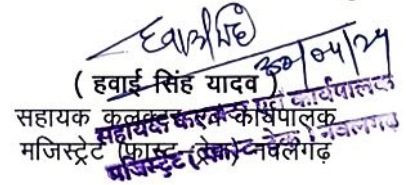 हवाईसिंह
30/04/24
( हवाई सिंह यादव )
सहायक कलक्टर एवं कार्यपालक
मजिस्ट्रेट (फास्ट ट्रेक) नवलगढ़
सहायक कलक्टर एवं कार्यपालक
मजिस्ट्रेट (फास्ट ट्रेक) नवलगढ़